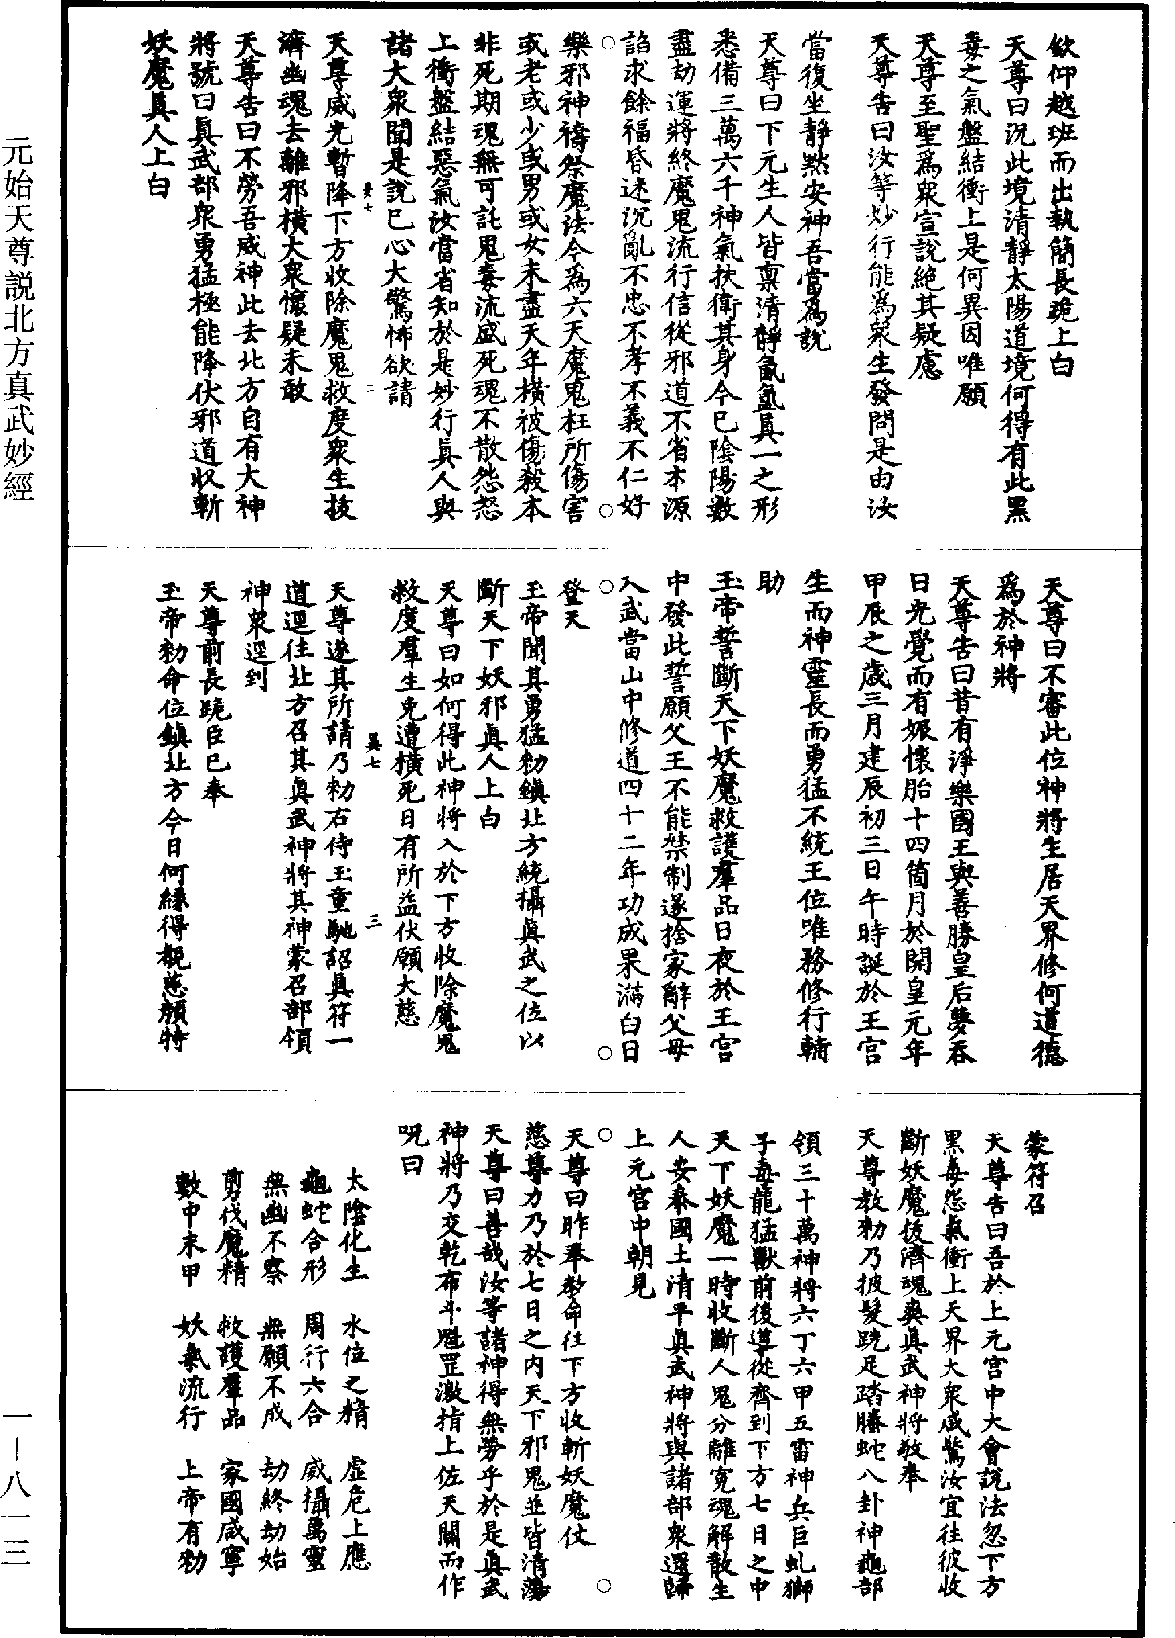 欽仰越班而出執簡長跪上白
天尊曰況此境清靜太陽道境何得有此黑
毒之氣盤結衝上是何異因唯願
天尊至聖爲衆宣說絕其疑慮
天尊告曰汝等妙行能爲衆生發問是由汝
當復坐靜默安神吾當爲說
天尊曰下元生人皆禀清靜氤氳真一之形
悉備三萬六千神氣扶衛其身今已陰陽數
盡劫運將終魔鬼流行信從邪道不省本源
諂求餘福昏迷沉亂不忠不孝不義不仁好
樂邪神禱祭魔法今爲六天魔鬼枉所傷害
或老或少或男或女未盡天年橫被傷殺本
非死期魂無可託鬼毒流盛死魂不散怨怒
上衝盤結惡氣汝當省知於是妙行真人與
諸大衆聞是說已心大驚怖欲請
天尊威光暫降下方收除魔鬼救度衆生拔
濟幽魂去離邪橫大衆懷疑未敢
天尊告曰不勞吾威神此去北方自有大神
將號曰真武部衆勇猛極能降伏邪道收斬
妖魔真人上白
天尊曰不審此位神將生居天界修何道德
爲於神將
天尊告曰昔有淨樂國王與善勝皇后夢吞
日光覺而有娠懷胎十四箇月於開皇元年
甲辰之歲三月建辰初三日午時誕於王宮
生而神靈長而勇猛不統王位唯務修行輔
助
玉帝誓斷天下妖魔救護羣品日夜於王宮
中發此誓願父王不能禁制遂捨家辭父母
入武當山中修道四十二年功成果滿白日
登天
玉帝聞其勇猛勑鎮北方統攝真武之位以
斷天下妖邪真人上白
天尊曰如何得此神將入於下方收除魔鬼
救度羣生免遭橫死日有所益伏願大慈
天尊遂其所請乃勑右侍玉童馳詔真符一
道逕往北方召其真武神將其神蒙召部領
神衆逕到
天尊前長跪臣已奉
玉帝勑命位鎮北方今日何緣得覩慈顏特
蒙符召
天尊告曰吾於上元宮中大會說法忽下方
黑毒怨氣衝上天界大衆咸驚汝宜往彼收
斷妖魔後濟魂爽真武神將敬奉
天尊教勑乃披髮跣足踏騰蛇八卦神龜部
領三十萬神將六丁六甲五雷神兵巨虬獅
子毒龍猛獸前後導從齊到下方七日之中
天下妖魔一時收斷人鬼分離冤魂解散生
人安泰國土清平真武神將與諸部衆還歸
上元宮中朝見
天尊曰昨奉教命往下方收斬妖魔仗
慈尊力乃於七日之內天下邪鬼並皆清蕩
天尊曰善哉汝等諸神得無勞乎於是真武
神將乃交乾布斗魁罡激指上佐天關而作
呪曰
太陰化生　水位之精　虛危上應
龜蛇合形　周行六合　威攝萬靈
無幽不察　無願不成　劫終劫始
剪伐魔精　救護羣品　家國咸寧
數中末甲　妖氣流行　上帝有勑
元始天尊說北方真武妙經
一—八一三